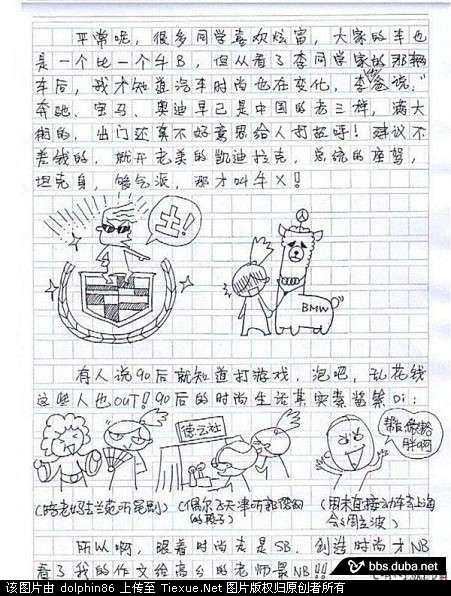 平常呢，很多同学喜欢炫富，大家的车也
是一个比一个牛B，但从看了李同学家的那辆
车后，我才知道汽车时尚也在变化，李爸说，
奔驰、宝马、奥迪早已是中国的老三样，满大
街的，出门还真不好意思给人打招呼！建议不
差钱的，就开老美的凯迪拉克，总统的座驾，
坦克身，够气派，那才叫牛X！
土！
BMW
有人说90后就知道打游戏，泡吧，乱花钱
这些人也OUT！90后的时尚生活其实素酱紫Di：
德云社
(陪老妈去兰克听尾剧)
(偶尔飞天津听郭德纲
的段子)
(周末直接动车去上海
会周立波)
所以啊，跟着时尚走是SB，创造时尚才NB
看了我的作文给高分的老师最NB!!
bbs.duba.net
该图片由 dolphin86 上传至 Tiexue.Net 图片版权归原创者所有